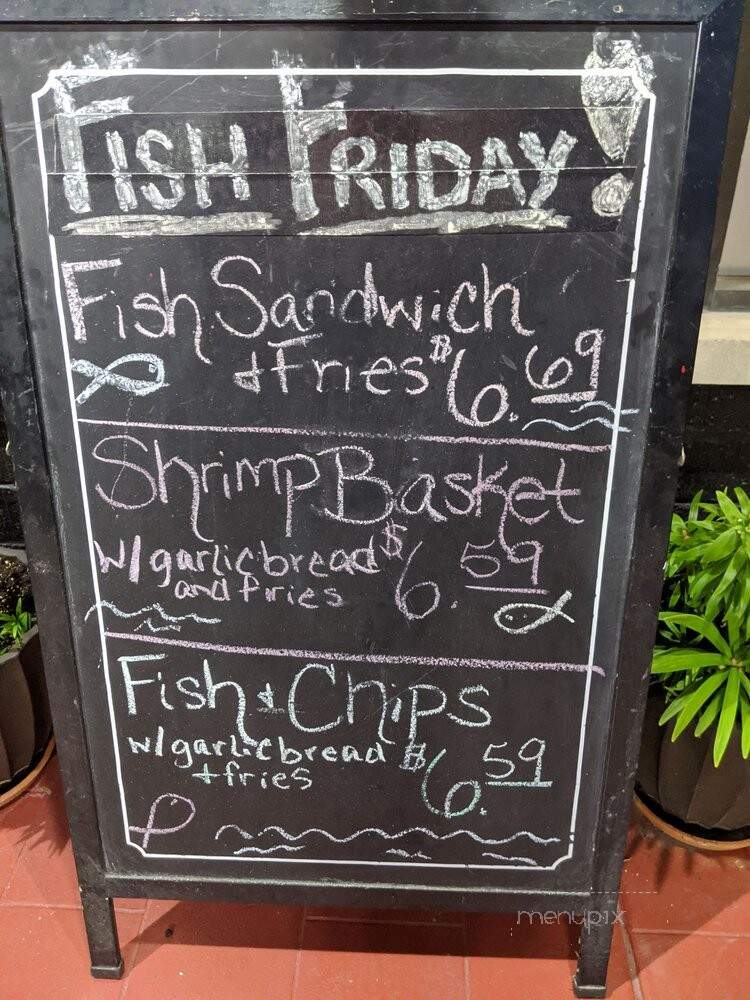 FISH FRIDAY!
Fish Sandwich
& Fries $6.69
Shrimp Basket
w/garlic bread $6.59
and fries
Fish & Chips
w/garlic bread $6.59
+fries
menupix